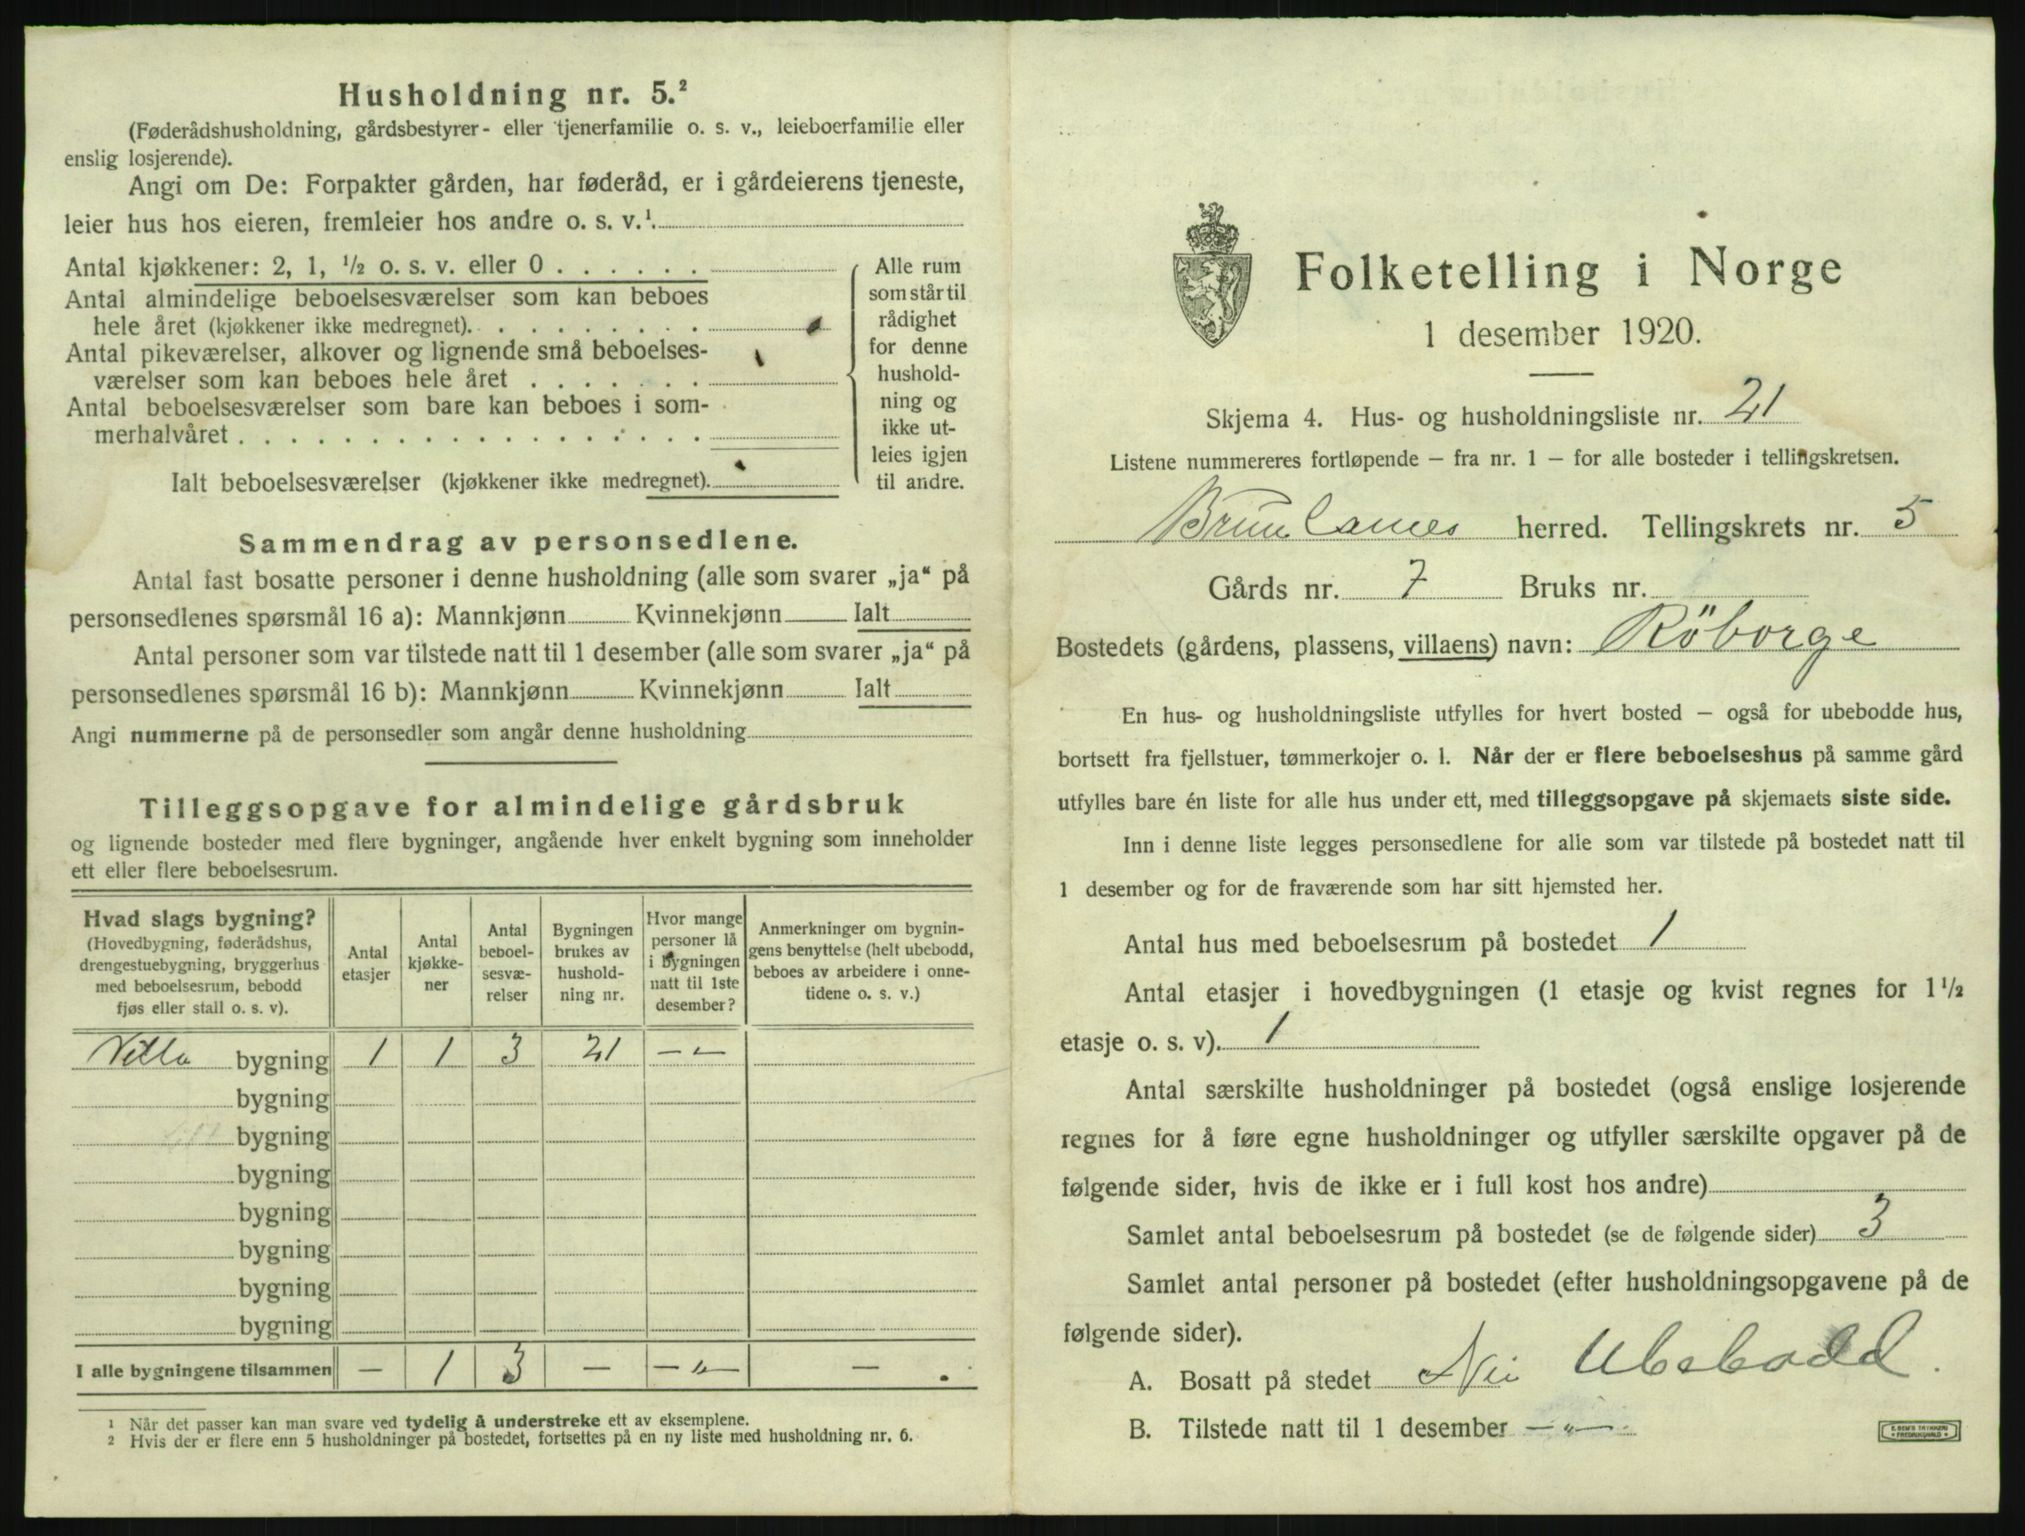 Husholdning nr. 5.²
(Føderådshusholdning, gårdsbestyrer- eller tjenerfamilie o. s. v., leieboerfamilie eller
enslig losjerende).
Angi om De: Forpakter gården, har føderåd, er i gårdeierens tjeneste,
leier hus hos eieren, fremleier hos andre o. s. v.¹
Antal kjøkkener: 2, 1, ½ o. s. v. eller 0 . . . . . .
Antal almindelige beboelsesværelser som kan beboes
hele året (kjøkkener ikke medregnet). . . . . . . . .
Antal pikeværelser, alkover og lignende små beboelses-
værelser som kan beboes hele året . . . . . . .
Antal beboelsesværelser som bare kan beboes i som-
merhalvåret . . . . . . . . . . . . . . . . . .
Ialt beboelsesværelser (kjøkkener ikke medregnet).
Alle rum
som står til
rådighet
for denne
hushold-
ning og
ikke ut-
leies igjen
til andre.
Sammendrag av personsedlene.
Antal fast bosatte personer i denne husholdning (alle som svarer „ja“ på
personsedlenes spørsmål 16 a): Mannkjønn Kvinnekjønn Ialt
Antal personer som var tilstede natt til 1 desember (alle som svarer „ja“ på
personsedlenes spørsmål 16 b): Mannkjønn Kvinnekjønn Ialt
Angi nummerne på de personsedler som angår denne husholdning
Tilleggsopgave for almindelige gårdsbruk
og lignende bosteder med flere bygninger, angående hver enkelt bygning som inneholder
ett eller flere beboelsesrum.
Hvad slags bygning?
(Hovedbygning, føderådshus,
drengestuebygning, bryggerhus
med beboelsesrum, bebodd
fjøs eller stall o. s. v).
Antal
etasjer
Antal
kjøkke-
ner
Antal
beboel-
sesvæ-
relser
Bygningen
brukes av
hushold-
ning nr.
Hvor mange
personer lå
i bygningen
natt til 1ste
desember?
Anmerkninger om bygnin-
gens benyttelse (helt ubebodd,
beboes av arbeidere i onne-
tidene o. s. v.)
Villa bygning 1 1 3 21 —„—
bygning
bygning
bygning
bygning
bygning
bygning
bygning
I alle bygningene tilsammen — 1 3 — —„— —
¹ Når det passer kan man svare ved tydelig å understreke ett av eksemplene.
² Hvis der er flere enn 5 husholdninger på bostedet, fortsettes på en ny liste med husholdning nr. 6.
Folketelling i Norge
1 desember 1920.
Skjema 4. Hus- og husholdningsliste nr. 21
Listene nummereres fortløpende – fra nr. 1 – for alle bosteder i tellingskretsen.
Brunlanes herred. Tellingskrets nr. 5
Gårds nr. 7 Bruks nr.
Bostedets (gårdens, plassens, villaens) navn: Röborge
En hus- og husholdningsliste utfylles for hvert bosted – også for ubebodde hus,
bortsett fra fjellstuer, tømmerkojer o. l. Når der er flere beboelseshus på samme gård
utfylles bare én liste for alle hus under ett, med tilleggsopgave på skjemaets siste side.
Inn i denne liste legges personsedlene for alle som var tilstede på bostedet natt til
1 desember og for de fraværende som har sitt hjemsted her.
Antal hus med beboelsesrum på bostedet 1
Antal etasjer i hovedbygningen (1 etasje og kvist regnes for 1½
etasje o. s. v). 1
Antal særskilte husholdninger på bostedet (også enslige losjerende
regnes for å føre egne husholdninger og utfyller særskilte opgaver på de
følgende sider, hvis de ikke er i full kost hos andre)
Samlet antal beboelsesrum på bostedet (se de følgende sider) 3
Samlet antal personer på bostedet (efter husholdningsopgavene på de
følgende sider).
A. Bosatt på stedet Nei Ubebodd.
B. Tilstede natt til 1 desember —„—
E. SEM'S TRYKKERI
FREDRIKSHALD